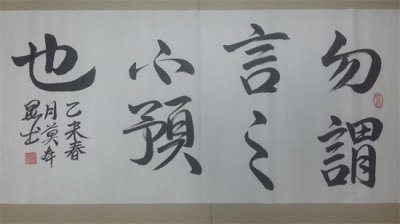 勿謂
言之
不預
也
乙未春
月莫年